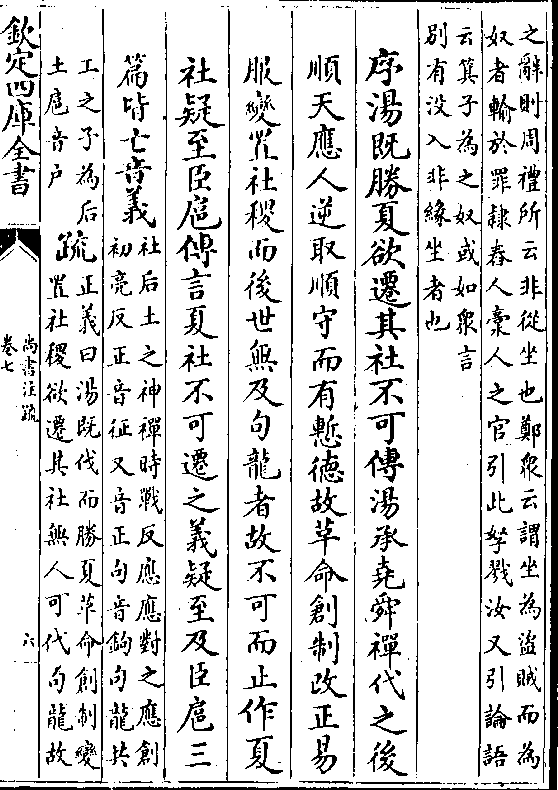 之辭則周禮所云非從坐也鄭衆云謂坐為盜賊而為
奴者輸於罪隸舂人稾人之官引此孥戮汝又引論語
云箕子為之奴或如衆言
別有没入非緣坐者也
序湯既勝夏欲遷其社不可傳湯承堯舜禪代之後
順天應人逆取順守而有慙德故革命創制改正易
服變置社稷而後世無及句龍者故不可而止作夏
社疑至臣扈傳言夏社不可遷之義疑至及臣扈三
篇皆亡音義
社后土之神禪時戰反應應對之應創
初亮反正音征又音正句音鉤句龍共
工之子為后
土扈音户
疏
正義曰湯既伐而勝夏革命創制變
置社稷欲遷其社無人可代句龍故
欽定四庫全書
尚書注疏
卷七
六